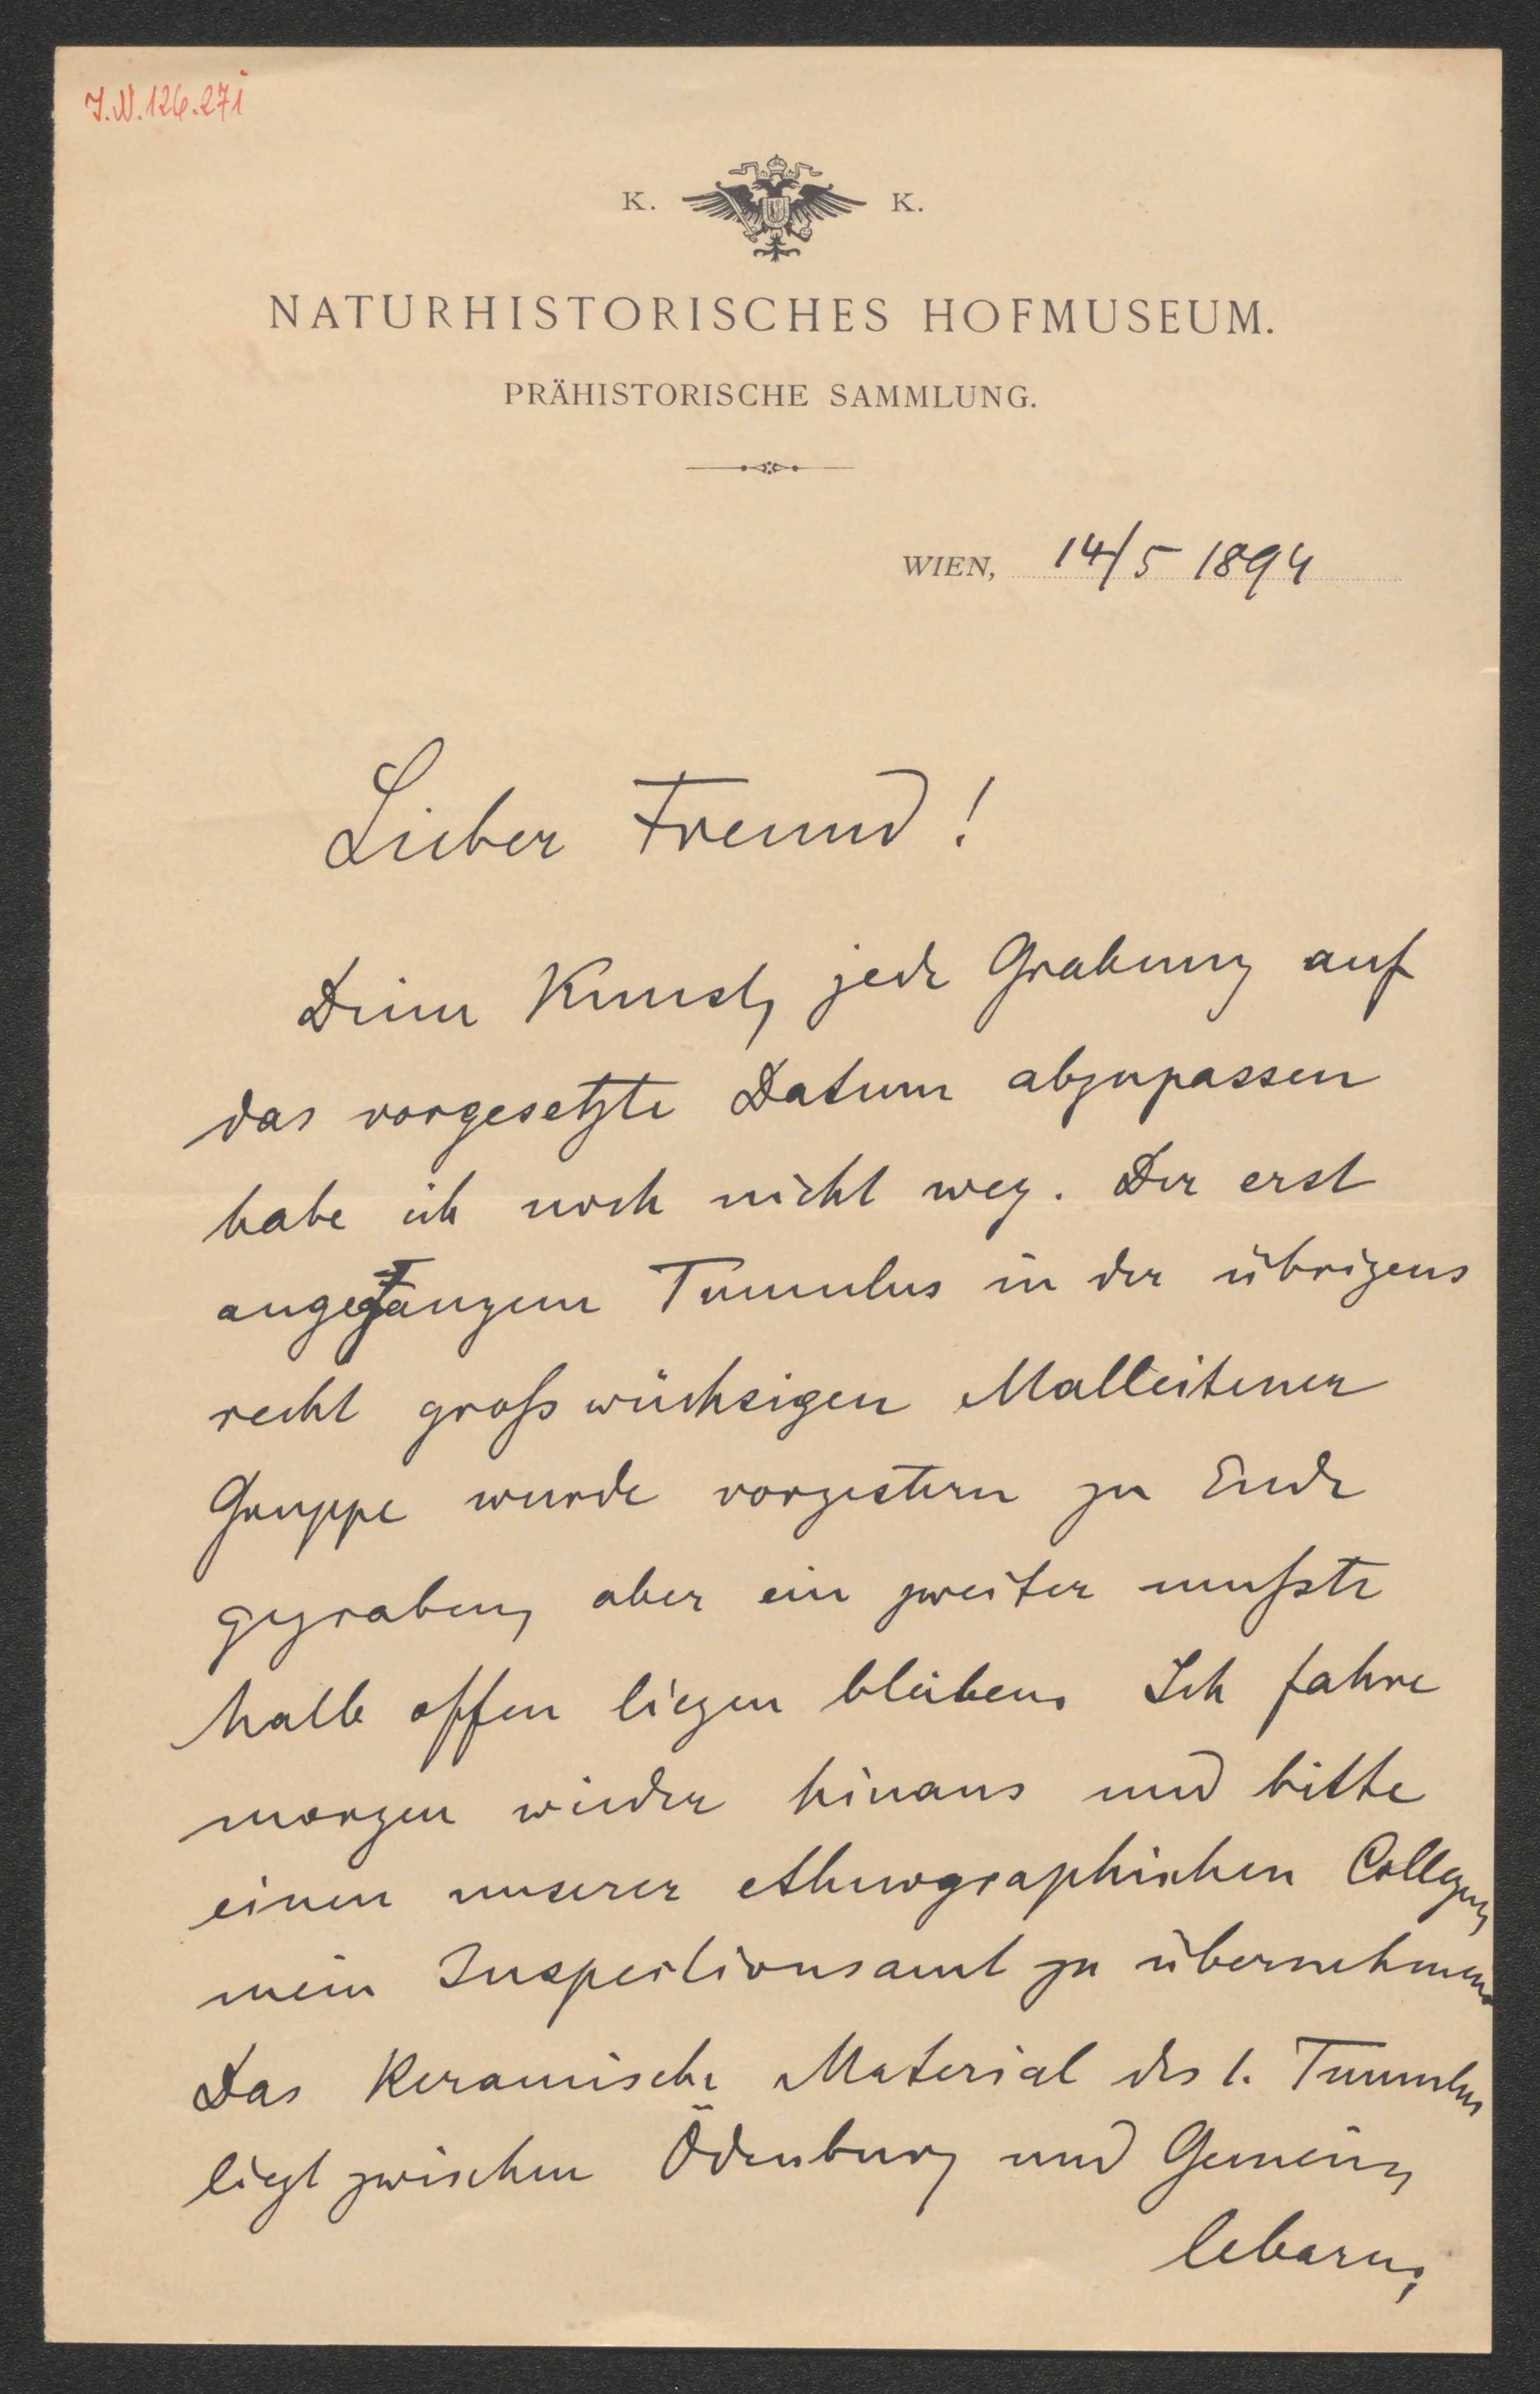 J.N. 126.271
K. K.
NATURHISTORISCHES HOFMUSEUM.
PRÄHISTORISCHE SAMMLUNG.
WIEN, 14/5 1894
Lieber Freund!
Deine Kunst, jede Grabung auf
das vorgesetzte Datum abzupassen
habe ich noch nicht weg. Der erst
angefangene Tumulus in der übrigens
recht großwüchsigen Malleitener
Gruppe wurde vorgestern zu Ende
gegraben, aber ein zweiter mußte
halb offen liegen bleiben. Ich fahre
morgen wieder hinaus und bitte
einen unserer ethnographischen Collegen,
mein Inspectionsamt zu übernehmen.
Das keramische Material des 1. Tumulus
liegt zwischen Ödenburg und Gemein-
lebarn;